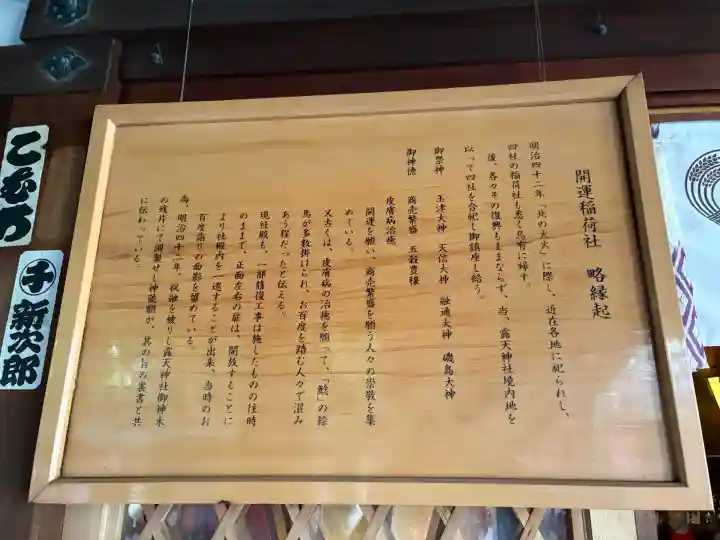 開運稲荷社　略縁起
明治四十二年「北の大火」に際し、近在各地に祀られし、
四社の稲荷社も悉く烏有に帰す。
後、各々その復興もままならず、当、露天神社境内地を
以って四社を合祀し御鎮座し給う。
御祭神　玉津大神　天信大神　融通大神　磯島大神
御神徳　商売繁盛　五穀豊穣
皮膚病治癒
開運を願い、商売繁盛を願う人々の崇敬を集
めている。
又古くは、皮膚病の治癒を願って、「鯰」の絵
馬が多数掛けられ、お百度を踏む人々で混み
あう程だったと伝える。
現社殿も、一部修復工事は施したものの往時
のままで、正面左右の扉は、開放することに
より社殿内を一巡することが出来、当時のお
百度詣りの面影を留めている。
尚、明治四十二年、祝融を被りし露天神社御神木
の残片にて調製せし神號額が、其の旨の裏書と共
に伝わっている。
千
新次郎